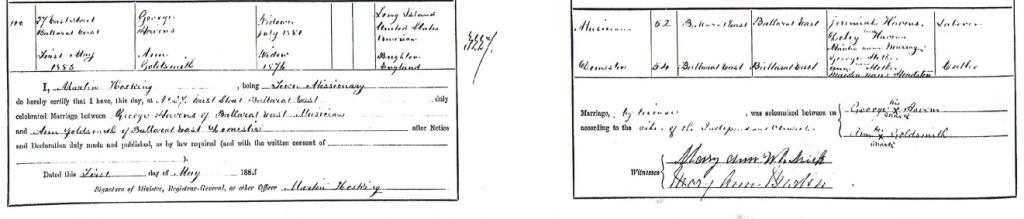 100 27 East Street George Widower Long Island
Ballarat East Havens July 1881 United States
American
First May Ann Widow Brighton
1883 Goldsmith 1876 England
I, Martin Hosking, being Town Missionary
do hereby certify that I have, this day, at No 27 East Street Ballarat East duly
celebrated Marriage between George Havens of Ballarat East Musician
and Ann Goldsmith of Ballarat East Domestic after Notice
and Declaration duly made and published, as by law required (and with the written consent of
).
Dated this First day of May 1883
Signature of Minister, Registrar-General, or other Officer Martin Hosking
Musician 52 Ballarat East Ballarat East Jeremiah Havens Laborer
Havens
Maiden name Murray
George
Domestic 54 Ballarat East Ballarat East
Maiden name
Marriage, by license, was solemnised between us George his X mark Havens
according to the rites of the Independent Church Ann her X mark Goldsmith
Witnesses Mary Ann
Mary Ann